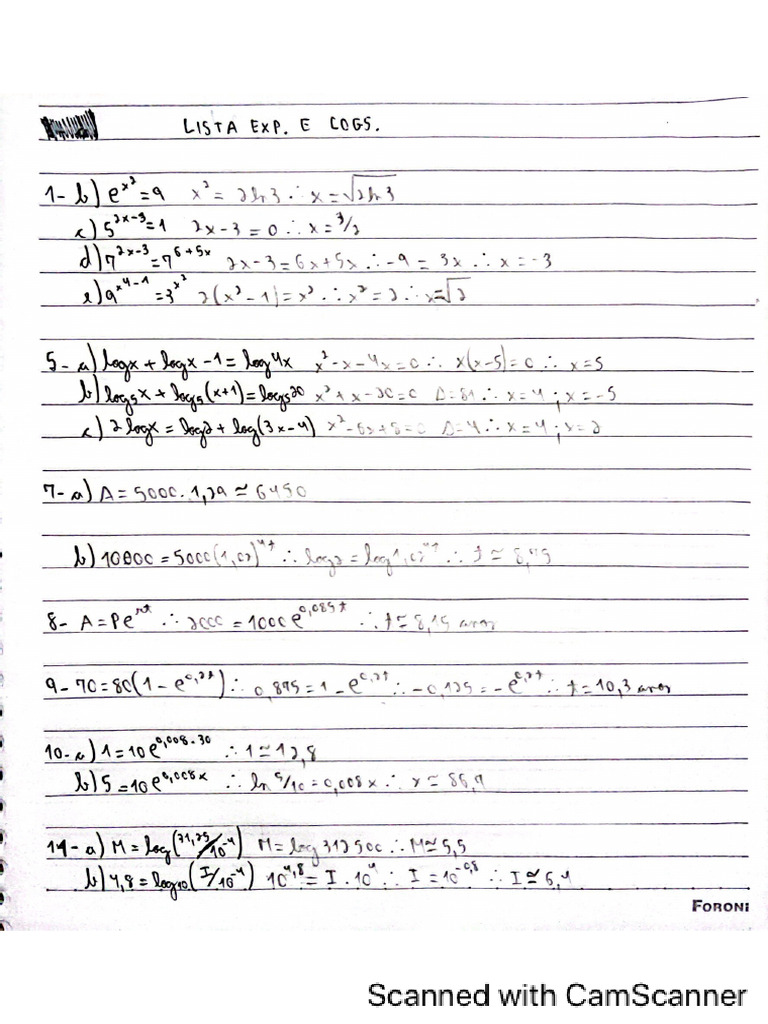 LISTA EXP. E LOGS.
1- b) e^x² = 9 x² = 2ln3 ∴ x = √2ln3
c) 5^2x-3 = 1 2x-3 = 0 ∴ x = 3/2
d) 7^2x-3 = 7^6+5x 2x-3 = 6x+5x ∴ -9 = 3x ∴ x = -3
e) 9^x⁴-1 = 3^x² 2(x²-1) = x² ∴ x² = 2 ∴ x = √2
5- a) logx + logx -1 = log4x x²-x-4x = 0 ∴ x(x-5) = 0 ∴ x = 5
b) log₅x + log₅(x+1) = log₅20 x²+x-20 = 0 Δ = 81 ∴ x = 4 ; x = -5
c) 2logx = log2 + log(3x-4) x²-6x+8 = 0 Δ = 4 ∴ x = 4 ; x = 2
7- a) A = 5000 . 1,29 ≃ 6450
b) 10000 = 5000(1,02)^4t ∴ log2 = log1,02^4t ∴ t ≃ 8,75
8- A = Pe^rt ∴ 2000 = 1000e^0,085t ∴ t ≃ 8,15 anos
9- 70 = 80(1 - e^0,2t) ∴ 0,875 = 1 - e^0,2t ∴ -0,125 = -e^0,2t ∴ t = 10,3 anos
10- a) 1 = 10e^0,008.30 ∴ 1 ≃ 12,8
b) 5 = 10e^0,008x ∴ ln 5/10 = 0,008x ∴ x ≃ 86,4
14- a) M = log(31,25/10⁻⁴) M = log 312500 ∴ M ≃ 5,5
b) 4,8 = log₁₀(I/10⁻⁴) 10^4,8 = I . 10⁴ ∴ I = 10^-0,8 ∴ I ≃ 6,4
FORONI
Scanned with CamScanner